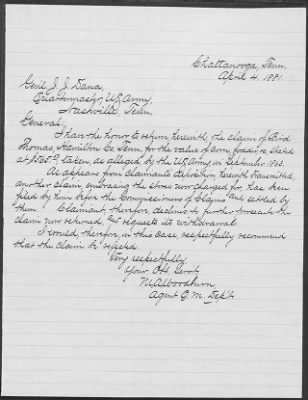 Chattanooga, Tenn.
April 4. 1881.
Genl. J. J. Dana,
Quartermaster, U.S. Army,
Nashville, Tenn.
General;
I have the honor to return, herewith, the claim of
Thomas, Hamilton Co. Tenn. for the value of corn, fodder, &c, stated
at taken, as alleged, by the U.S. Army, in September 1863.
As appears from claimant's deposition herewith transmitted,
another claim, embracing the stores now charged for has been
filed by him before the Commissioners of Claims and settled by
them. Claimant, therefore, declines to further prosecute the
claim now returned, and requests its withdrawal.
I would, therefore, in this case, respectfully recommend
that the claim be rejected.
Very respectfully,
Your Obt. Servt.
Agent Q. M. Dept.